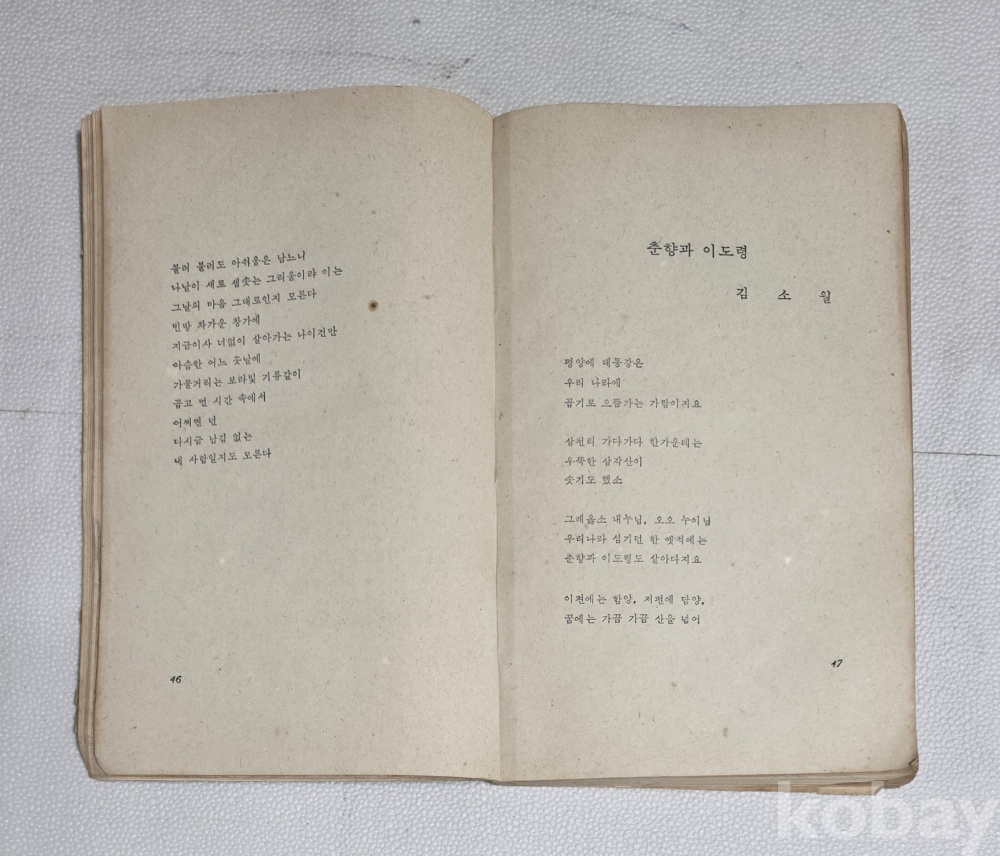 불러 불러도 아쉬움은 남느니
나날이 새로 샘솟는 그리움이랴 이는
그날의 마음 그대로인지 모른다
빈방 차가운 창가에
지금이사 너없이 살아가는 나이건만
아슴한 어느 훗날에
가물거리는 보라빛 기류같이
곱고 먼 시간 속에서
어쩌면 넌
다시금 남김 없는
내 사람일지도 모른다
46
춘향과 이도령
김 소 월
평양에 대동강은
우리 나라에
곱기로 으뜸가는 가람이지요
삼천리 가다가다 한가운데는
우뚝한 삼각산이
솟기도 했소
그래 옳소 내누님, 오오 누이님
우리나라 섬기던 한 옛적에는
춘향과 이도령도 살아다지요
이편에는 함양, 저편에 담양,
꿈에는 가끔 가끔 산을 넘어
47
kobay